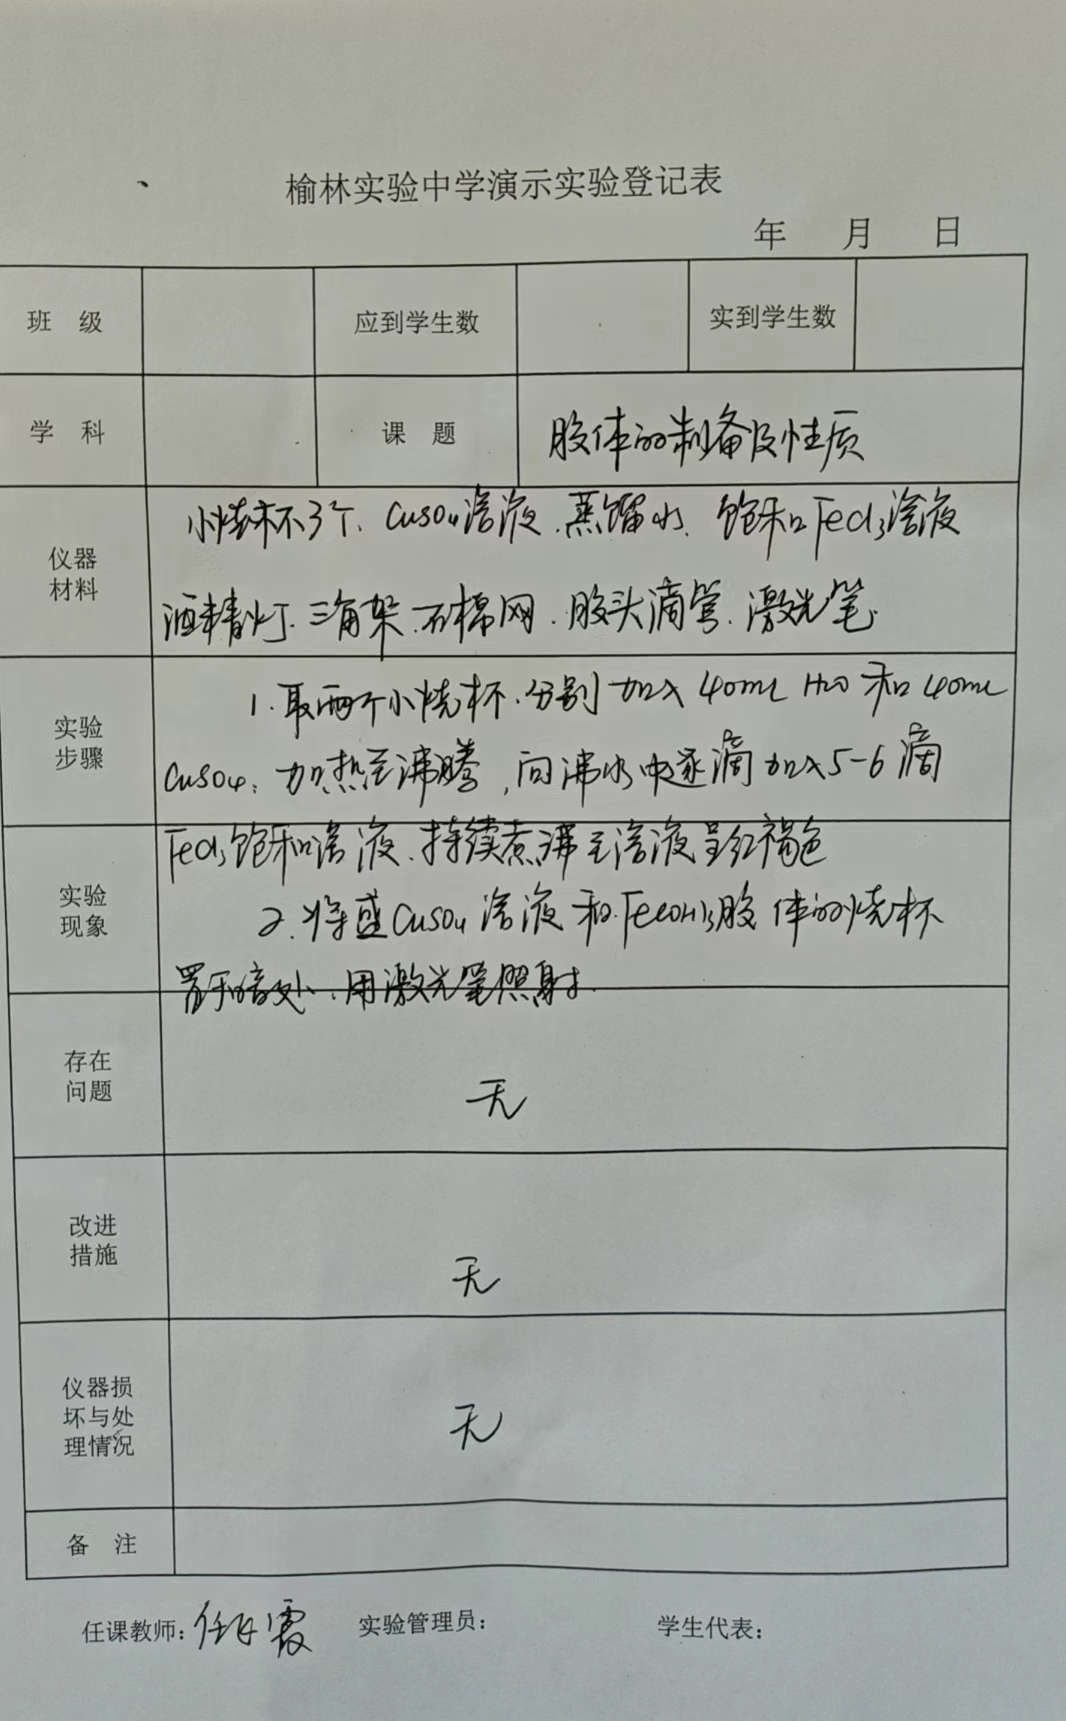 榆林实验中学演示实验登记表
年 月 日
班 级 应到学生数 实到学生数
学 科 课 题 胶体的制备及性质
仪器
材料
小烧杯3个、CuSO4溶液、蒸馏水、饱和FeCl3溶液
酒精灯、三角架、石棉网、胶头滴管、激光笔.
实验
步骤
1.取两个小烧杯.分别加入40mL H2O和40mL
CuSO4,加热至沸腾,向沸水中逐滴加入5-6滴
实验
现象
FeCl3饱和溶液、持续煮沸至溶液呈红褐色
2.将盛CuSO4溶液和Fe(OH)3胶体的烧杯
置于暗处、用激光笔照射.
存在
问题
无
改进
措施
无
仪器损
坏与处
理情况
无
备 注
任课教师: 实验管理员: 学生代表: